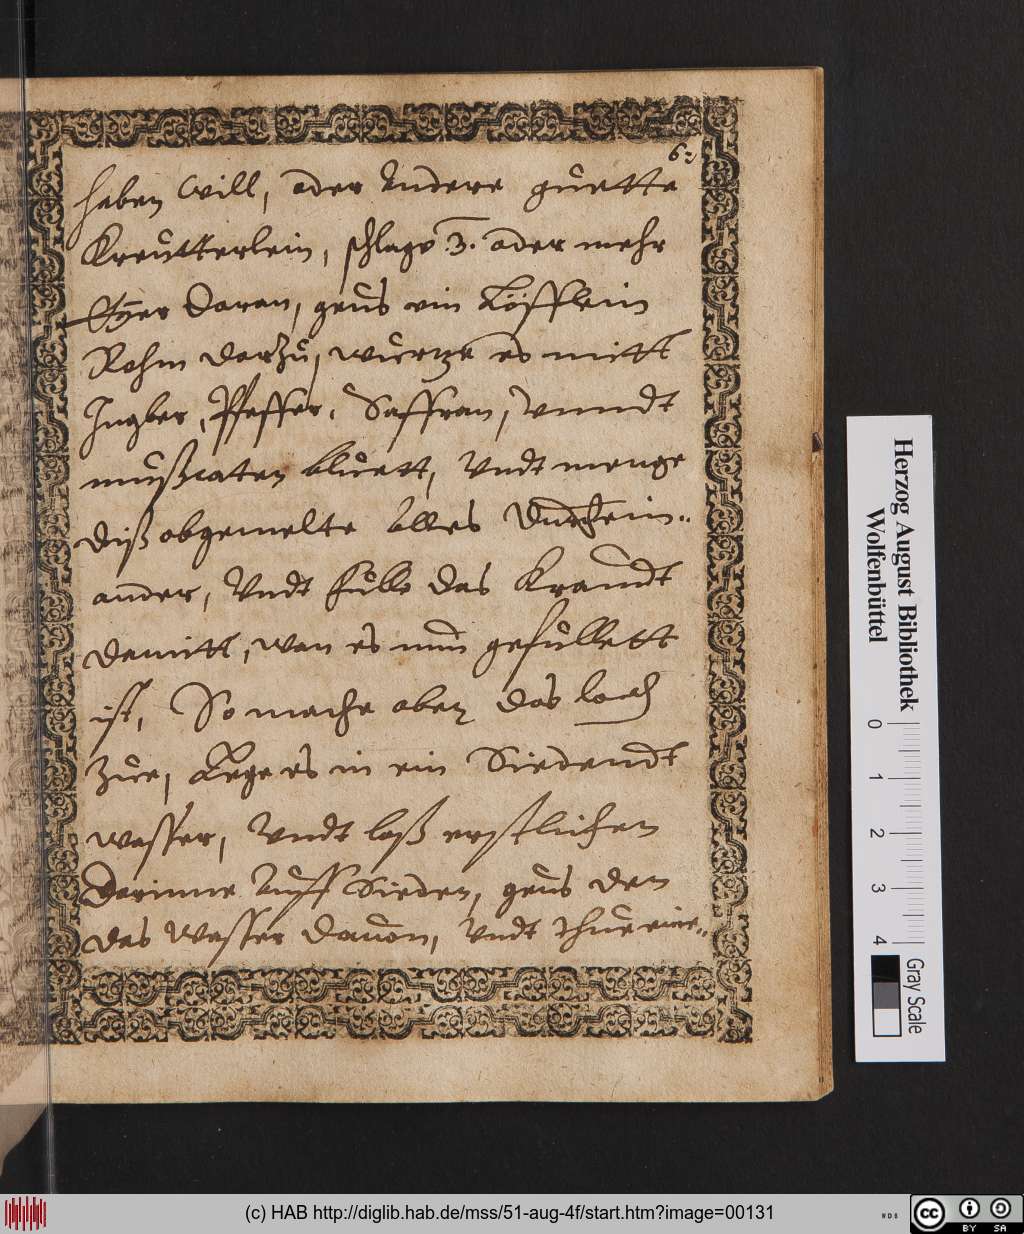 62
haben will, oder andere guette
Kreütterlein, schlage .3. oder mehr
Ayer daran, geüs ein Löfflein
Rohm darzu, würtze es mitt
Ingber, Pfeffer, Saffran, vnndt
mußcaten bluett, Vndt menge
diß obgemelte alles durchein„
ander, Vndt fülle das Krautt
damitt, wan es nun gefüllett
ist, So mache oben das loch
zue, Lege es in ein Siedendt
wasser, Vndt laß erstlichen
darinne auff Sieden, geus den
das Wasser dauon, Vndt thue eine„
Herzog August Bibliothek
Wolfenbüttel
0
1
2
3
4
Gray Scale
(c) HAB http://diglib.hab.de/mss/51-aug-4f/start.htm?image=00131
WDB
cc
BY SA